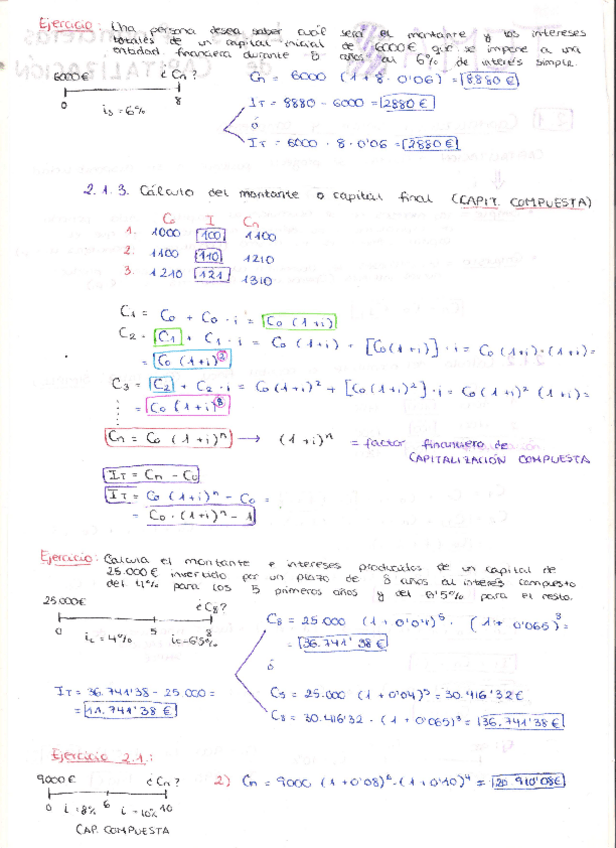 Ejercicio: Una persona desea saber cuál será el montante y los intereses
totales de un capital inicial de 6000€ que se impone a una
entidad financiera durante 8 años al 6% de interés simple.
6000€ ¿Cn?
0 8
is = 6%
Cn = 6000 (1 + 8 · 0'06) = 8880€
IT = 8880 - 6000 = 2880€
ó
IT = 6000 · 8 · 0'06 = 2880€
2.1.3. Cálculo del montante o capital final (CAPIT. COMPUESTA)
Co I Cn
1. 1000 100 1100
2. 1100 110 1210
3. 1210 121 1310
C1 = Co + Co · i = Co (1+i)
C2 = C1 + C1 · i = Co (1+i) + [Co(1+i)] · i = Co (1+i)·(1+i) =
= Co (1+i)²
C3 = C2 + C2 · i = Co(1+i)² + [Co(1+i)²] · i = Co(1+i)² (1+i) =
= Co (1+i)³
Cn = Co (1+i)ⁿ → (1+i)ⁿ = factor financiero de
CAPITALIZACIÓN COMPUESTA
IT = Cn - Co
IT = Co (1+i)ⁿ - Co =
= Co · (1+i)ⁿ - 1
Ejercicio: Calcula el montante e intereses producidos de un capital de
25.000€ invertido por un plazo de 8 años al interés compuesto
del 4% para los 5 primeros años y del 6'5% para el resto.
25.000€ ¿C8?
0 5 8
ic = 4% ic = 6'5%
C8 = 25.000 (1 + 0'04)⁵ · (1 + 0'065)³ =
= 36.741'38€
ó
IT = 36.741'38 - 25000 =
= 11.741'38€
C5 = 25.000 (1 + 0'04)⁵ = 30.416'32€
C8 = 30.416'32 · (1 + 0'065)³ = 36.741'38€
Ejercicio 2.1.:
9000€ ¿Cn?
0 i = 8% 6 i = 10% 10
CAP. COMPUESTA
2) Cn = 9000 (1 + 0'08)⁶ · (1 + 0'10)⁴ = 20.910'08€